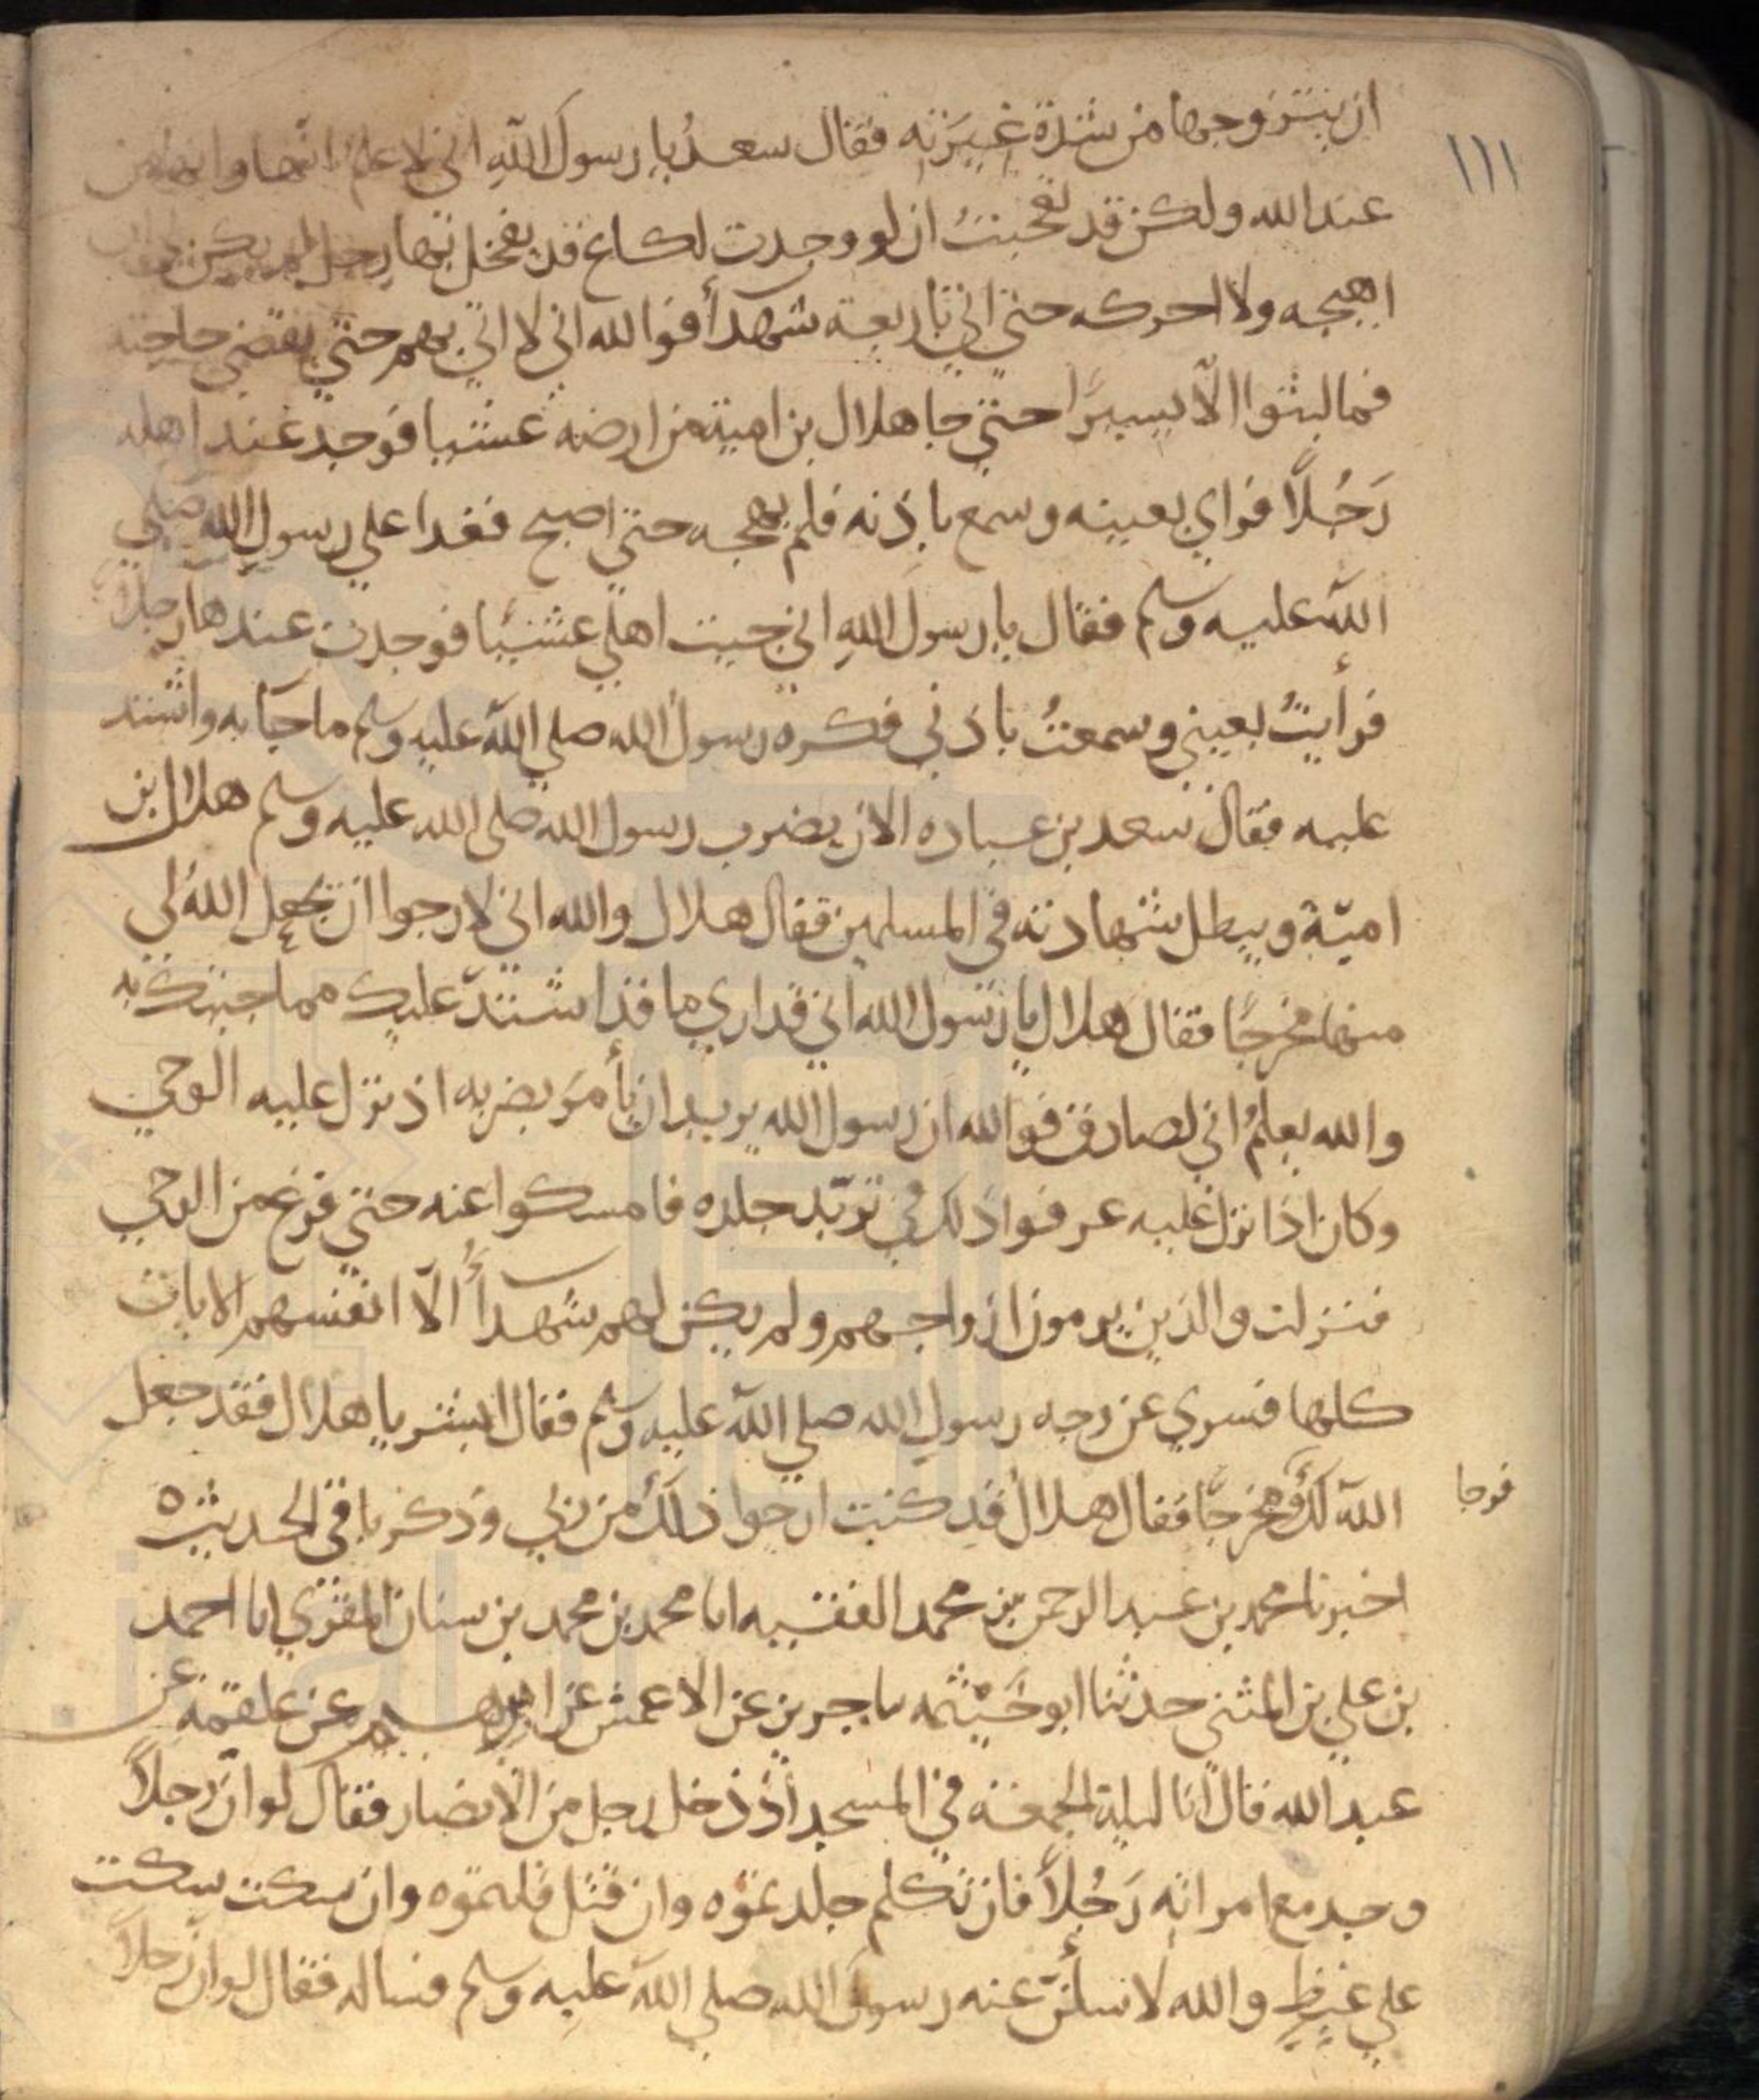 ١١١
ان يتزوجها من شدة غيرته فقال سعد يا رسول الله اني لاعلم انها وانها من
عند الله ولكن قد تعجبت ان لو وجدت لكاع قد تفخذها رجل لم يكن لي ان
اهيجه ولا احركه حتى اتي باربعة شهدأ فوالله اني لا اتي بهم حتى يقضي حاجته
فما لبثوا الّا يسيرًا حتي جا هلال بن امية من ارضه عشيا فوجد عند اهله
رَجُلًا فراي بعينه وسمع باذنه فلم يهجه حتى اصبح فغدا علي رسول الله صلي
الله عليه وسلم فقال يا رسول اللهِ اني جيت اهلي عشيًا فوجدت عندها رجلًا
فرأيتُ بعيني وسمعتُ باذني فكره رسول الله صلي الله عليه وسلم ما جا به واشتد
عليه فقال سعد بن عباده الان يضرب رسول الله صلى الله عليه وسلم هلال بن
اميّة ويبطل شهادته في المسلمين فقال هلال والله اني لارجوا ان يجعل اللهُ لي
منها مخرجًا فقال هلال يا رسول الله اني قد اري ما قد اشتدّ عليك مما جيتك به
والله يعلمُ اني لصادق فوالله ان رسول الله يريد ان يأمرَ بضربه اذ نزل عليه الوحي
وكان اذا نزل عليه عرفوا ذلك في تربّد جلده فامسكوا عنه حتي فرغ من الوحي
فنزلت والذين يرمون ازواجهم ولم يكن لهم شهدأُ الّا انفسهم الايات
كلها فسري عن وجه رسول الله صلي الله عليه وسلم فقال ابشر يا هلال فقد جعل
الله لك ومخرجًا فقال هلال قد كنت ارجوا ذلك من ربي وذكر باقي الحديث ه
فرجا
اخبرنا محمد بن عبد الرحمن بن محمد الفقيه انا محمد بن محمد بن سنان المقري انا احمد
بن علي بن المثني حدثنا ابو خَيْثمه نا جرير عن الاعمش عن ابرهيم عن علقمة عن
عبد الله قال انا ليلة الجمعة في المسجد اذ دخل رجل من الانصار فقال لو ان رجلًا
وجد مع امراته رَجُلًا فان تكلم جلدتموه وان قتل قتلتموه وان سكت سكت
علي غيظٍ والله لاسألنّ عنه رسول الله صلي الله عليه وسلم فساله فقال لو ان رجلًا